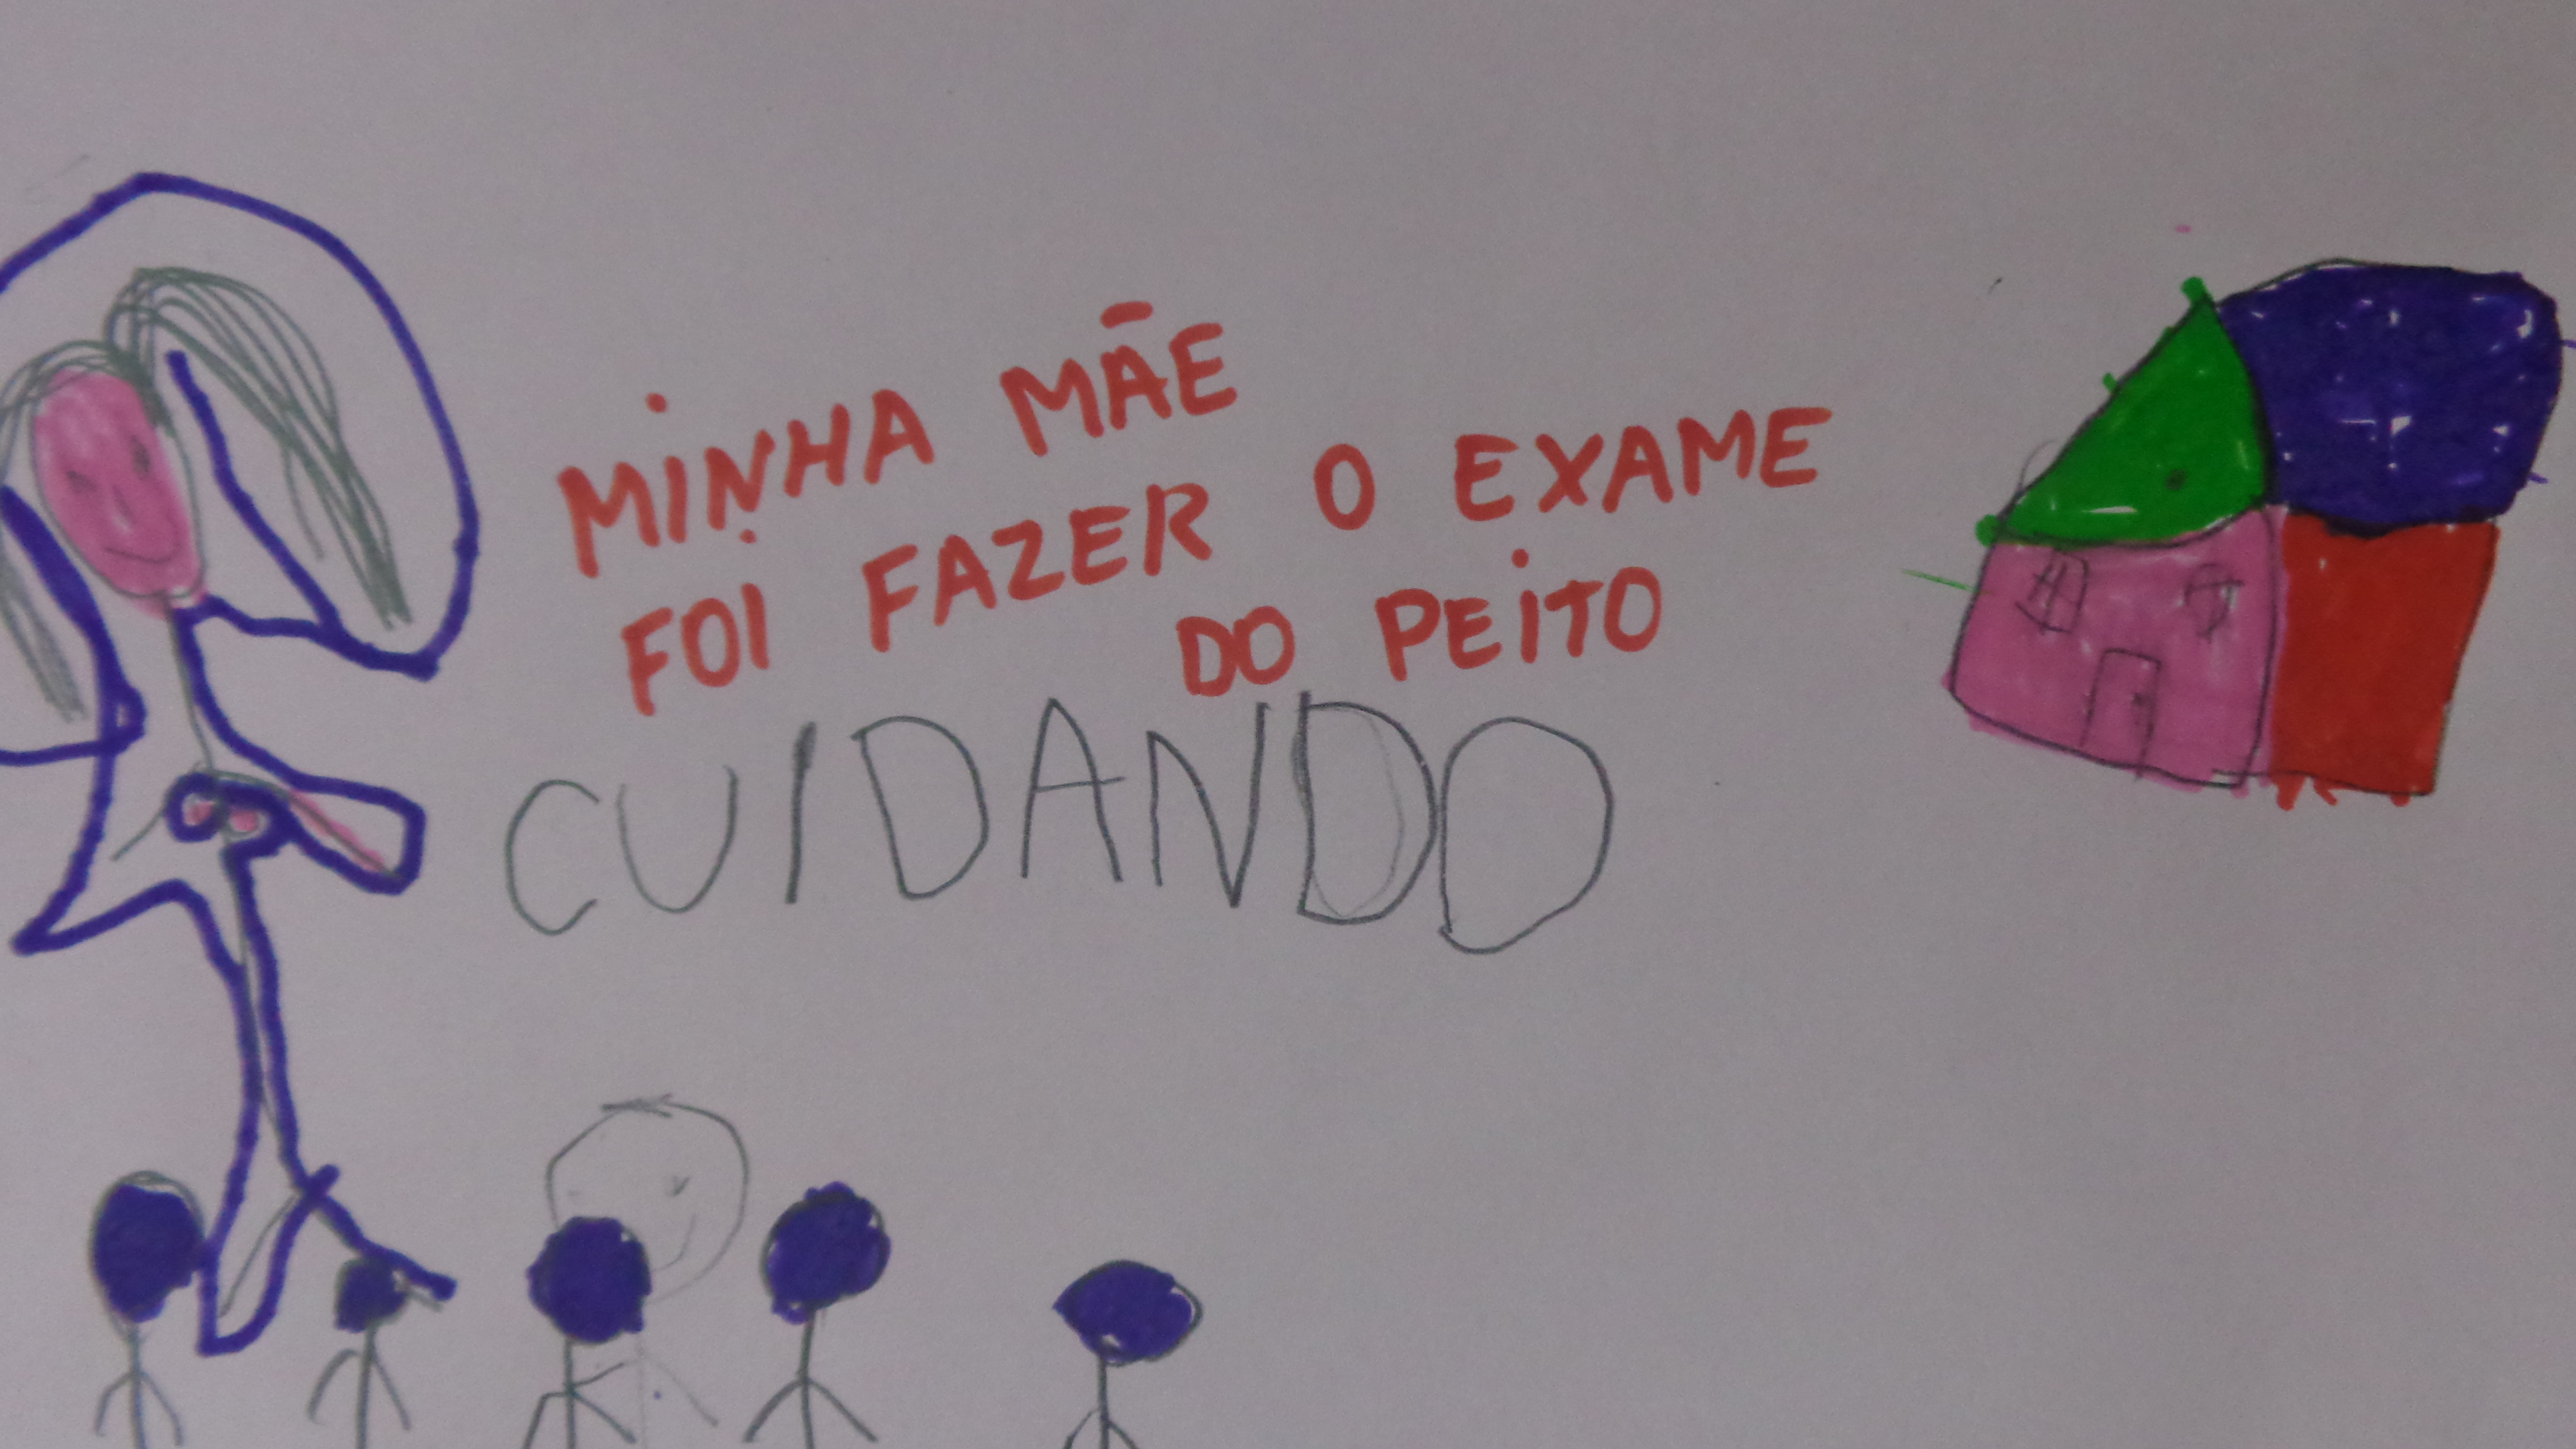 MINHA MÃE
FOI FAZER O EXAME
DO PEITO
CUIDANDO